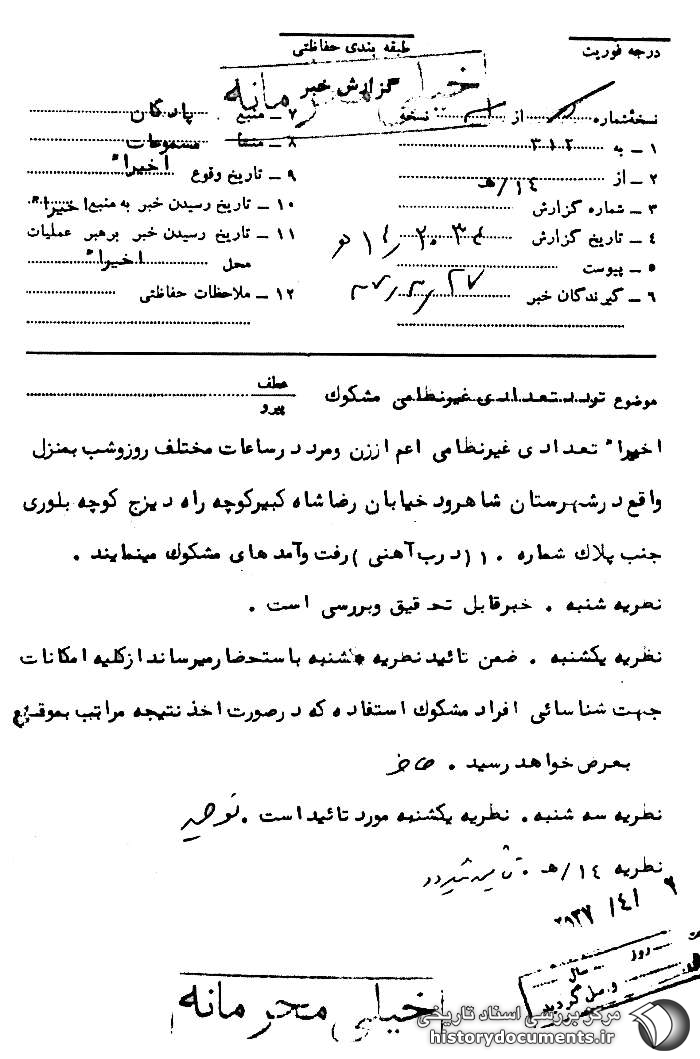 طبقه بندی حفاظتی
درجه فوریت
خیلی محرمانه
گزارش خبر
نسخهٔ شماره از نسخه
۱ ــ به ۳۱۲
۲ ــ از ۱۴/هـ
۳ ــ شماره گزارش
۴ ــ تاریخ گزارش
۵ ــ پیوست
۶ ــ گیرندگان خبر
۷ ــ منبع پادگان
۸ ــ منشأ مسموعات
۹ ــ تاریخ وقوع اخیراً
۱۰ ــ تاریخ رسیدن خبر به منبع اخیراً
۱۱ ــ تاریخ رسیدن خبر برهبر عملیات
محل اخیراً
۱۲ ــ ملاحظات حفاظتی
موضوع تردد تعدادی غیرنظامی مشکوک
عطف
پیرو
اخیراً تعدادی غیرنظامی اعم اززن ومرد درساعات مختلف روزوشب بمنزل
واقع درشهرستان شاهرود خیابان رضاشاه کبیرکوچه راه دیزج کوچه بلوری
جنب پلاک شماره ۱۰ (درب آهنی) رفت وآمد های مشکوک مینمایند .
نظریه شنبه . خبرقابل تحقیق وبررسی است .
نظریه یکشنبه . ضمن تائید نظریه شنبه باستحضارمیرساند ازکلیه امکانات
جهت شناسائی افراد مشکوک استفاده که درصورت اخذ نتیجه مراتب بموقع
بعرض خواهد رسید .
نظریه سه شنبه . نظریه یکشنبه مورد تائید است .
نظریه ۱۴/هـ .
خیلی محرمانه
روز
سال
وصل گردید
مرکز بررسی اسناد تاریخی
historydocuments.ir